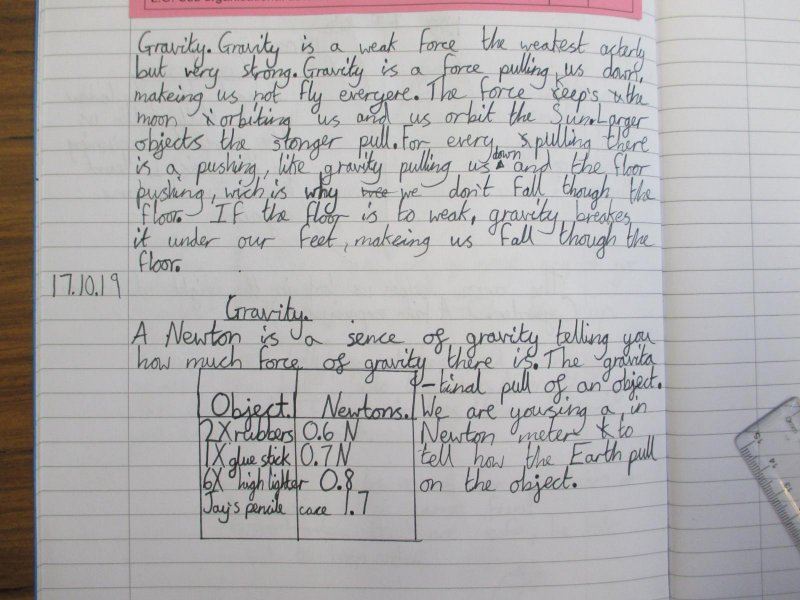 Gravity. Gravity is a weak force the weakest acterly
but very strong. Gravity is a force pulling us down,
makeing us not fly everyere. The force keep's the
moon orbiting us and us orbit the Sun. Larger
objects the stonger pull. For every pulling there
is a pushing, like gravity pulling us down and the floor
pushing, wich is why we don't fall though the
floor. If the floor is to weak, gravity breakes
it under our feet, makeing us fall though the
floor.
17.10.19
Gravity.
A Newton is a sence of gravity telling you
how much force of gravity there is. The gravita
-tinal pull of an object.
We are yousing a in
Newton meter to
tell how the Earth pull
on the object.
Object. Newtons.
2X rubbers 0.6 N
1X glue stick 0.7 N
6X high lighter 0.8
Jay's pencile cace 1.7